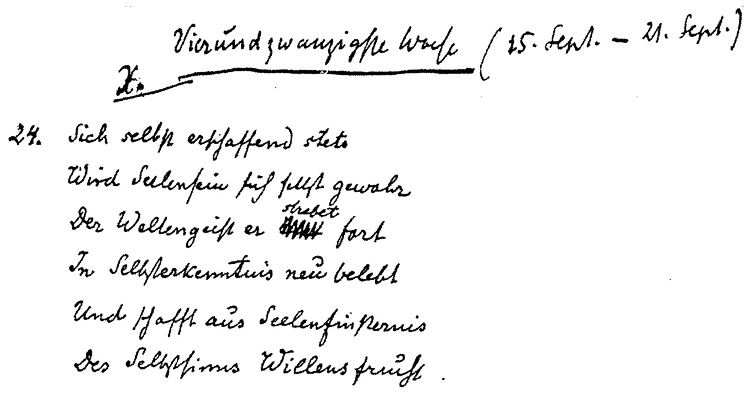 Vierundzwanzigste Woche (15. Sept. – 21. Sept.)
X.
24. Sich selbst erschaffend stets
Wird Seelensein sich selbst gewahr
Der Weltengeist er strebet fort
In Selbsterkenntnis neu belebt
Und schafft aus Seelenfinsternis
Des Selbstsinns Willensfrucht.